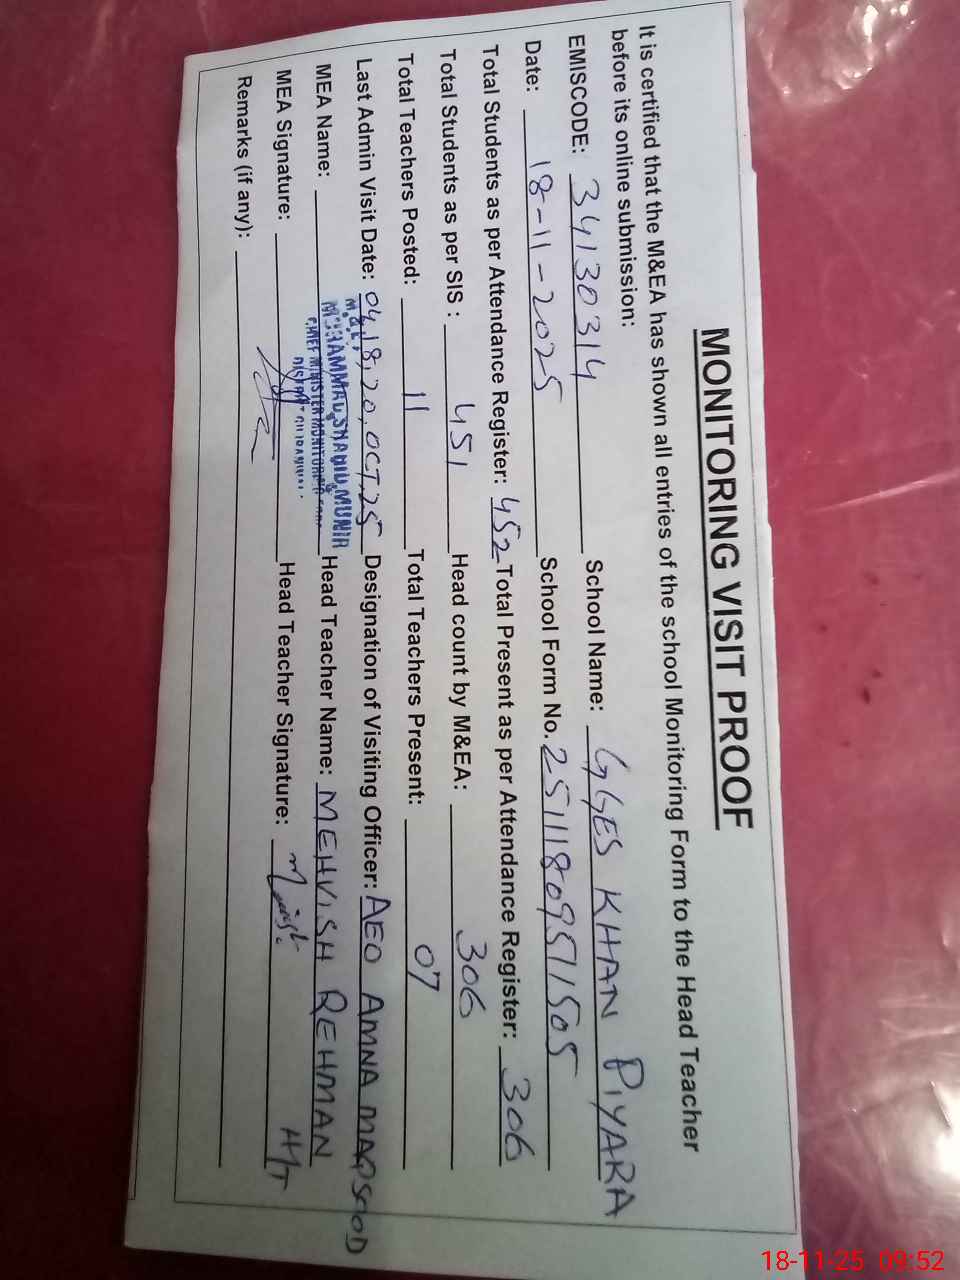 MONITORING VISIT PROOF
It is certified that the M&EA has shown all entries of the school Monitoring Form to the Head Teacher
before its online submission:
EMISCODE: 34130314 School Name: GGES KHAN PIYARA
Date: 18-11-2025 School Form No. 25111809511505
Total Students as per Attendance Register: 452 Total Present as per Attendance Register: 306
Total Students as per SIS : 451 Head count by M&EA: 306
Total Teachers Posted: 11 Total Teachers Present: 07
Last Admin Visit Date: 04,18,20,OCT,25 Designation of Visiting Officer: AEO AMNA MAQSOOD
MEA Name: MUHAMMAD SHAHID MUNIR Head Teacher Name: MEHVISH REHMAN
CHIEF MINISTER MONITORING
MEA Signature: Head Teacher Signature: H/T
Remarks (if any):
18-11-25 09:52